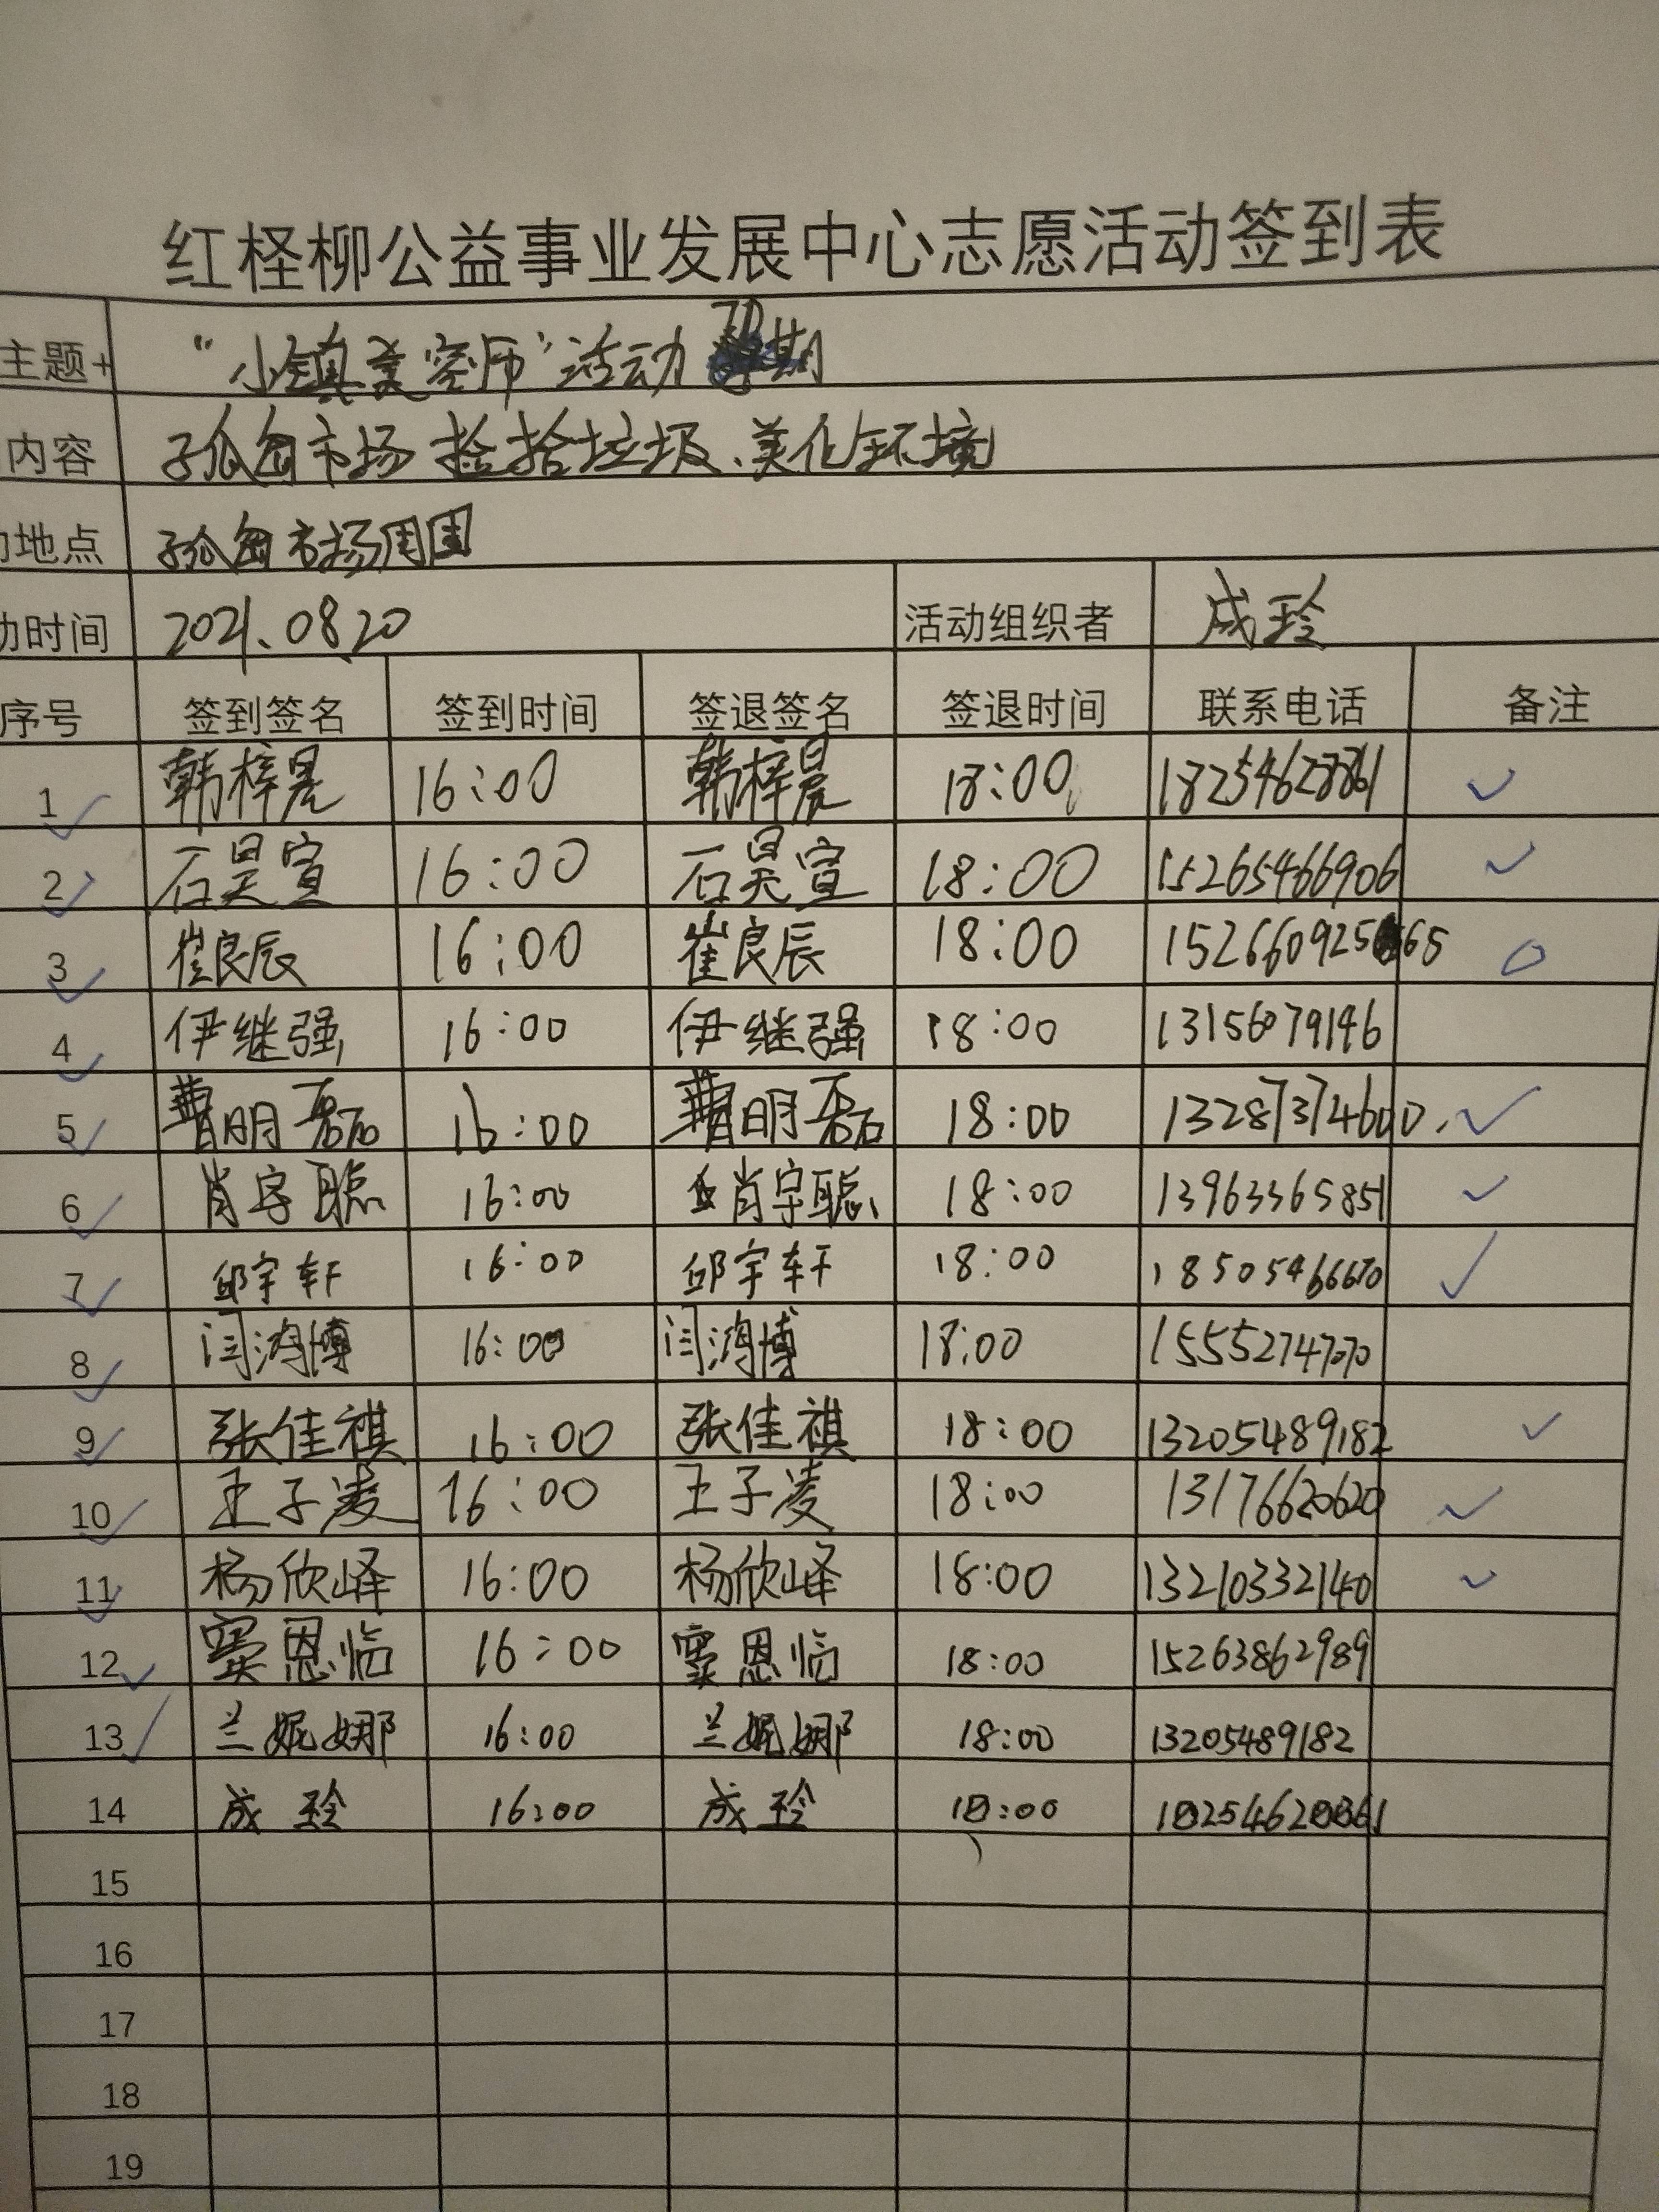 红柽柳公益事业发展中心志愿活动签到表
主题+ “小镇美容师”活动 期
内容 孤岛市场捡拾垃圾、美化环境
地点 孤岛市场周围
时间 2021.08.20 活动组织者 成玲
序号 签到签名 签到时间 签退签名 签退时间 联系电话 备注
1 韩梓晨 16:00 韩梓晨 18:00 18254628861 ✓
2 石昊宣 16:00 石昊宣 18:00 15265466906 ✓
3 崔良辰 16:00 崔良辰 18:00 152660925 65 O
4 伊继强 16:00 伊继强 18:00 13156079146
5 曹明磊 16:00 曹明磊 18:00 13287374600. ✓
6 肖宇聪 16:00 肖宇聪 18:00 13963365851 ✓
7 邱宇轩 16:00 邱宇轩 18:00 18505466670 ✓
8 闫鸿博 16:00 闫鸿博 18:00 15552747070
9 张佳祺 16:00 张佳祺 18:00 13205489182 ✓
10 王子凌 16:00 王子凌 18:00 13176620620 ✓
11 杨欣峄 16:00 杨欣峄 18:00 13210332140 ✓
12 窦恩临 16:00 窦恩临 18:00 15263862989
13 兰妮娜 16:00 兰妮娜 18:00 13205489182
14 成玲 16:00 成玲 18:00 18254628861
15
16
17
18
19